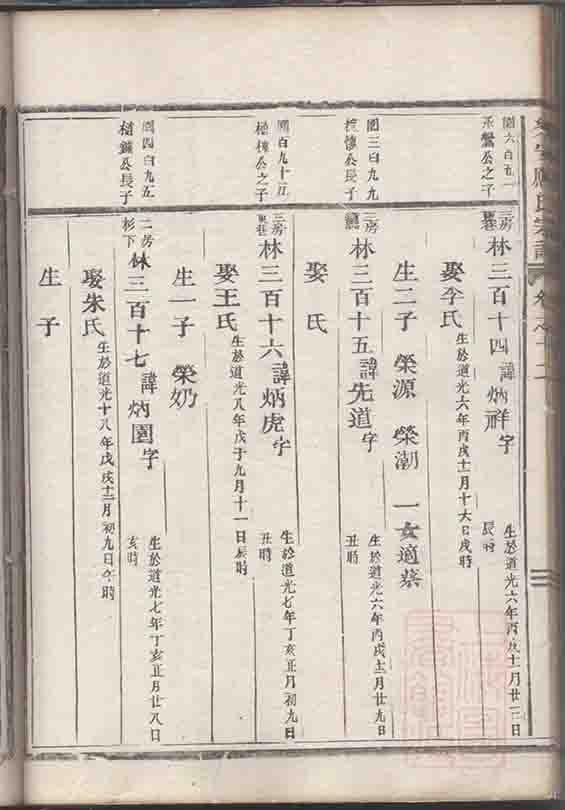 園六百五一
承繫公之子
三房
林三百十四諱炳祥字
生於道光六年丙戌十一月廿二日
辰時
娶李氏
生於道光六年丙戌十二月十六日戌時
生二子 榮源 榮潮 一女適蔡
園三百九九
公長子
三房
林三百十五諱先道字
生於道光六年丙戌十二月廿九日
丑時
娶 氏
園百九十五
公之子
三房
林三百十六諱炳虎字
生於道光七年丁亥正月初九日
丑時
娶王氏
生於道光八年戊子九月十一日辰時
生一子 榮奶
園四百九五
公長子
二房
杉下
林三百十七諱炳園字
生於道光七年丁亥正月廿八日
亥時
娶朱氏
生於道光十八年戊戌十二月初九日午時
生 子